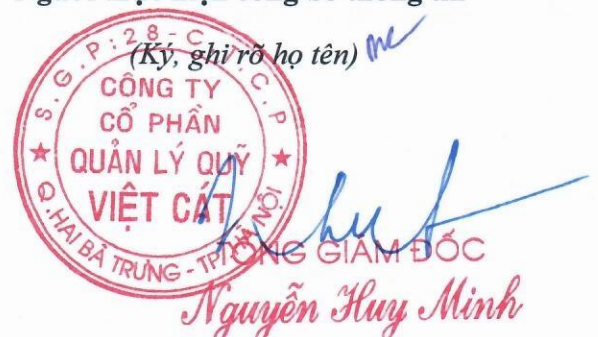 (Ký, ghi rõ họ tên)
S.G.P:28-C.T.C.P
CÔNG TY
CỔ PHẦN
QUẢN LÝ QUỸ
VIỆT CÁT
Q.HAI BÀ TRƯNG - TP.HÀ NỘI
TỔNG GIÁM ĐỐC
Nguyễn Huy Minh